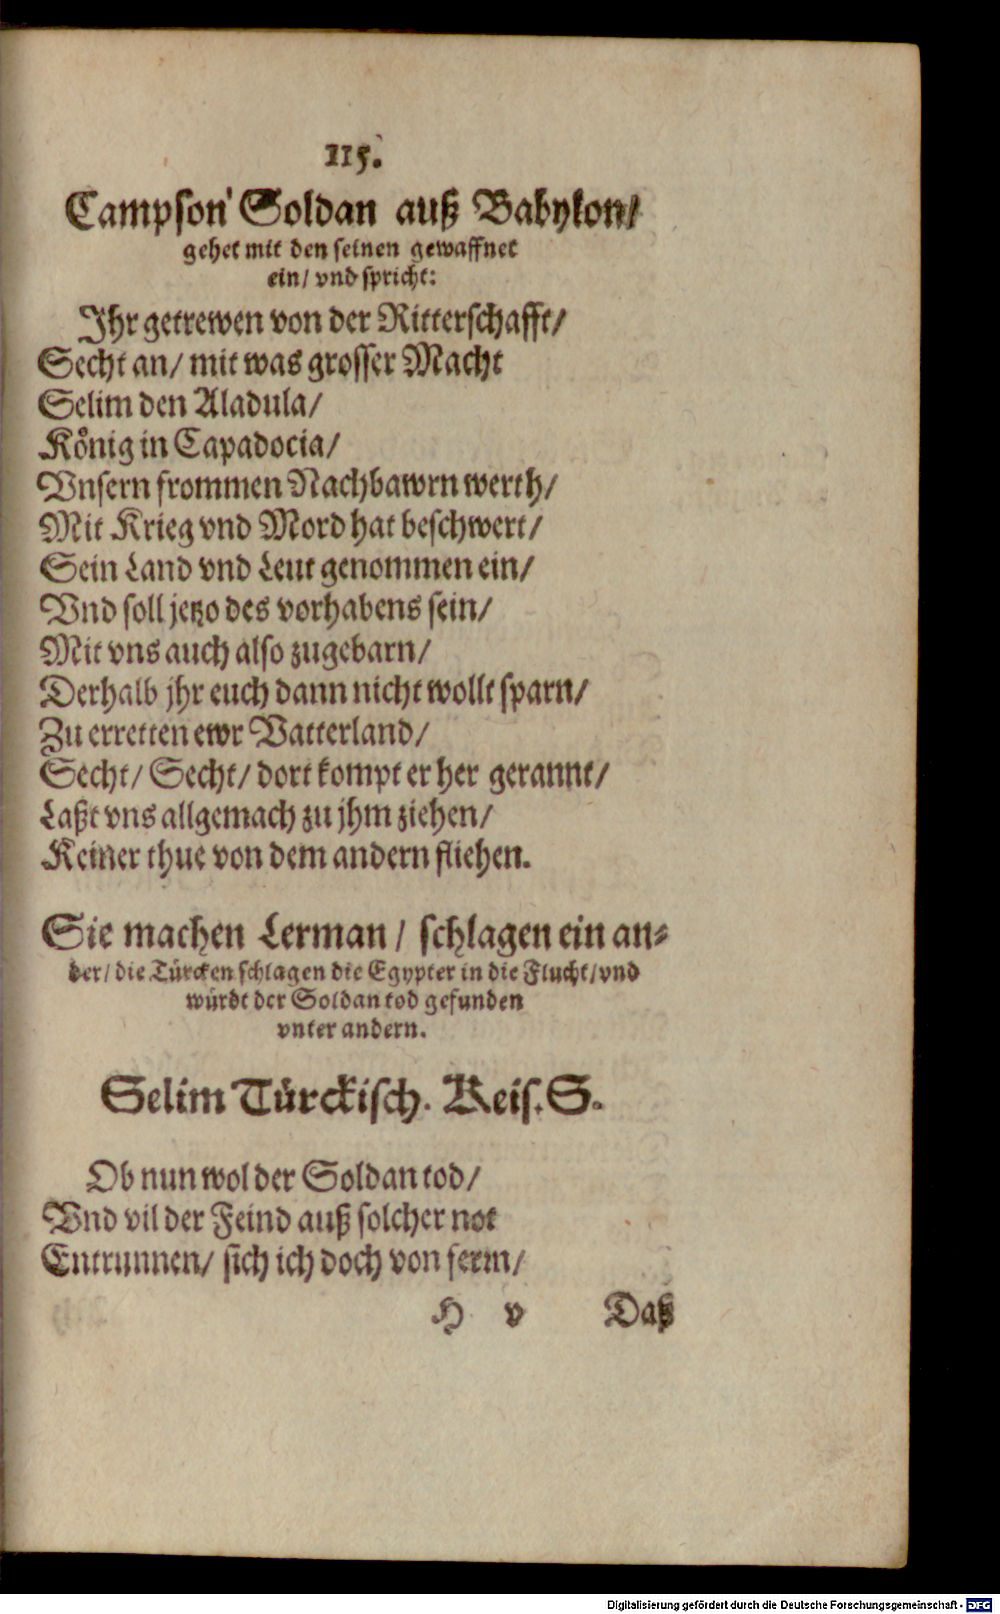 115.
Campson Soldan auß Babylon/
gehet mit den seinen gewaffnet
ein/ vnd spricht:
Jhr getrewen von der Ritterschafft/
Secht an/ mit was grosser Macht
Selim den Aladula/
Koͤnig in Capadocia/
Vnsern frommen Nachbawrn werth/
Mit Krieg vnd Mord hat beschwert/
Sein Land vnd Leut genommen ein/
Vnd soll jetzo des vorhabens sein/
Mit vns auch also zugebarn/
Derhalb jhr euch dann nicht wollt sparn/
Zu erretten ewr Vatterland/
Secht/ Secht/ dort kompt er her gerannt/
Laßt vns allgemach zu jhm ziehen/
Keiner thue von dem andern fliehen.
Sie machen Lerman/ schlagen ein an⸗
der/ die Tuͤrcken schlagen die Egypter in die Flucht/ vnd
wuͤrdt der Soldan tod gefunden
vnter andern.
Selim Tuͤrckisch. Keis. S.
Ob nun wol der Soldan tod/
Vnd vil der Feind auß solcher not
Entrunnen/ sich ich doch von ferm/
H v Daß
Digitalisierung gefördert durch die Deutsche Forschungsgemeinschaft - DFG